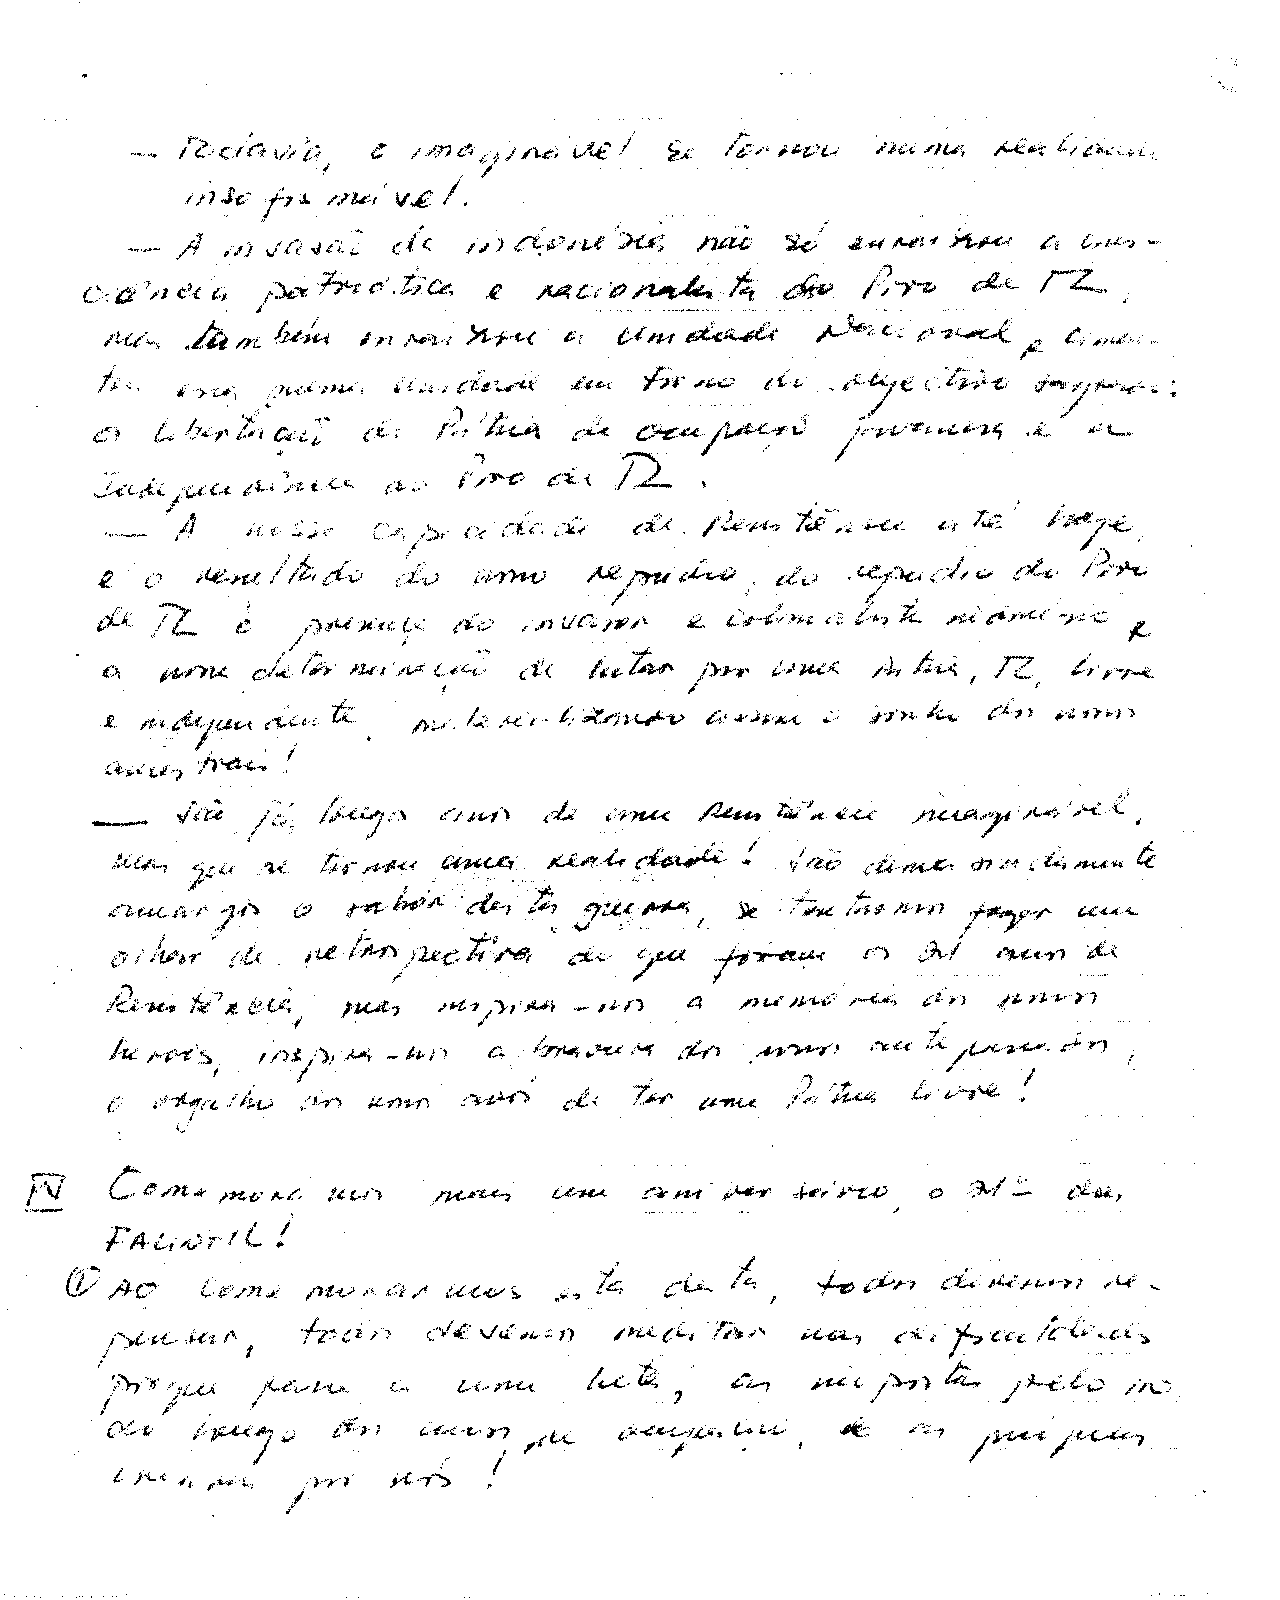 — Todavia, o imaginável se tornou numa realidade
insofismável.
— A invasão da indonésia não só enraizou a cons-
ciência patriótica e nacionalista do Povo de TL,
mas também enraizou a Unidade Nacional, e cimen-
tou essa numa unidade em torno do objectivo sagrado:
a libertação da Pátria da ocupação javanesa e a
Independência do Povo de TL.
— A nossa capacidade de Resistência até hoje,
é o resultado do nosso repúdio, do repúdio do Povo
de TL à presença do invasor e colonialista indonésio e
a nossa determinação de lutar por uma Pátria, TL, livre
e independente, materializando assim o sonho dos nossos
ancestrais!
— São já longos anos de uma Resistência inimaginável,
mas que se tornou uma realidade! São demasiadamente
amargos o sabor desta guerra, se tentarmos fazer um
olhar de retrospectiva do que foram os 21 anos de
Resistência, mas inspira-nos a memória dos nossos
heróis, inspira-nos a bravura dos nossos antepassados,
o orgulho dos nossos avós de ter uma Pátria livre!
IV Comemoramos mais um aniversário, o 21º das
FALINTIL!
① Ao comemorarmos esta data, todos devemos re-
pensar, todos devemos meditar nas dificuldades
porque passa a nossa luta, as impostas pelo ini
ao longo dos anos de ocupação, e as
criadas por nós!